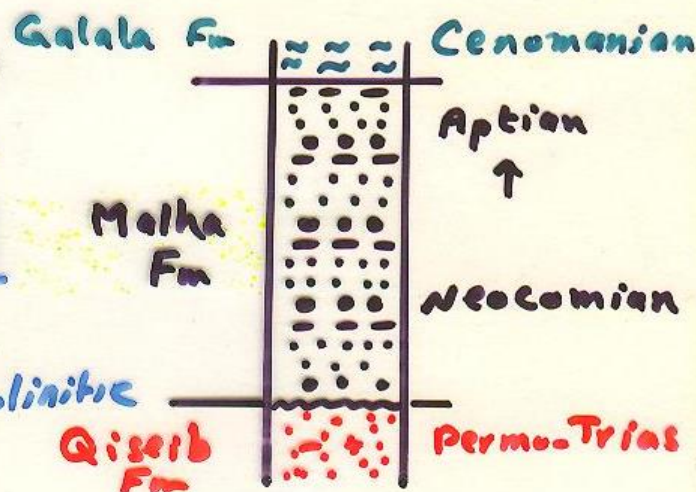 Galala Fm
Cenomanian
Aptian
↑
Malha
Fm
Neocomian
linitic
Qiseib
Fm
Permo-Trias